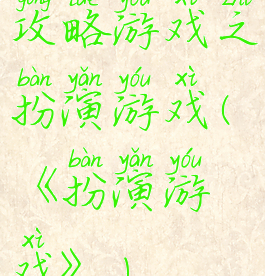 gōng lüè yóu xì zhī
攻略游戏之
bàn yǎn yóu xì
扮演游戏(
bàn yǎn yóu
《扮演游
xì
戏》)